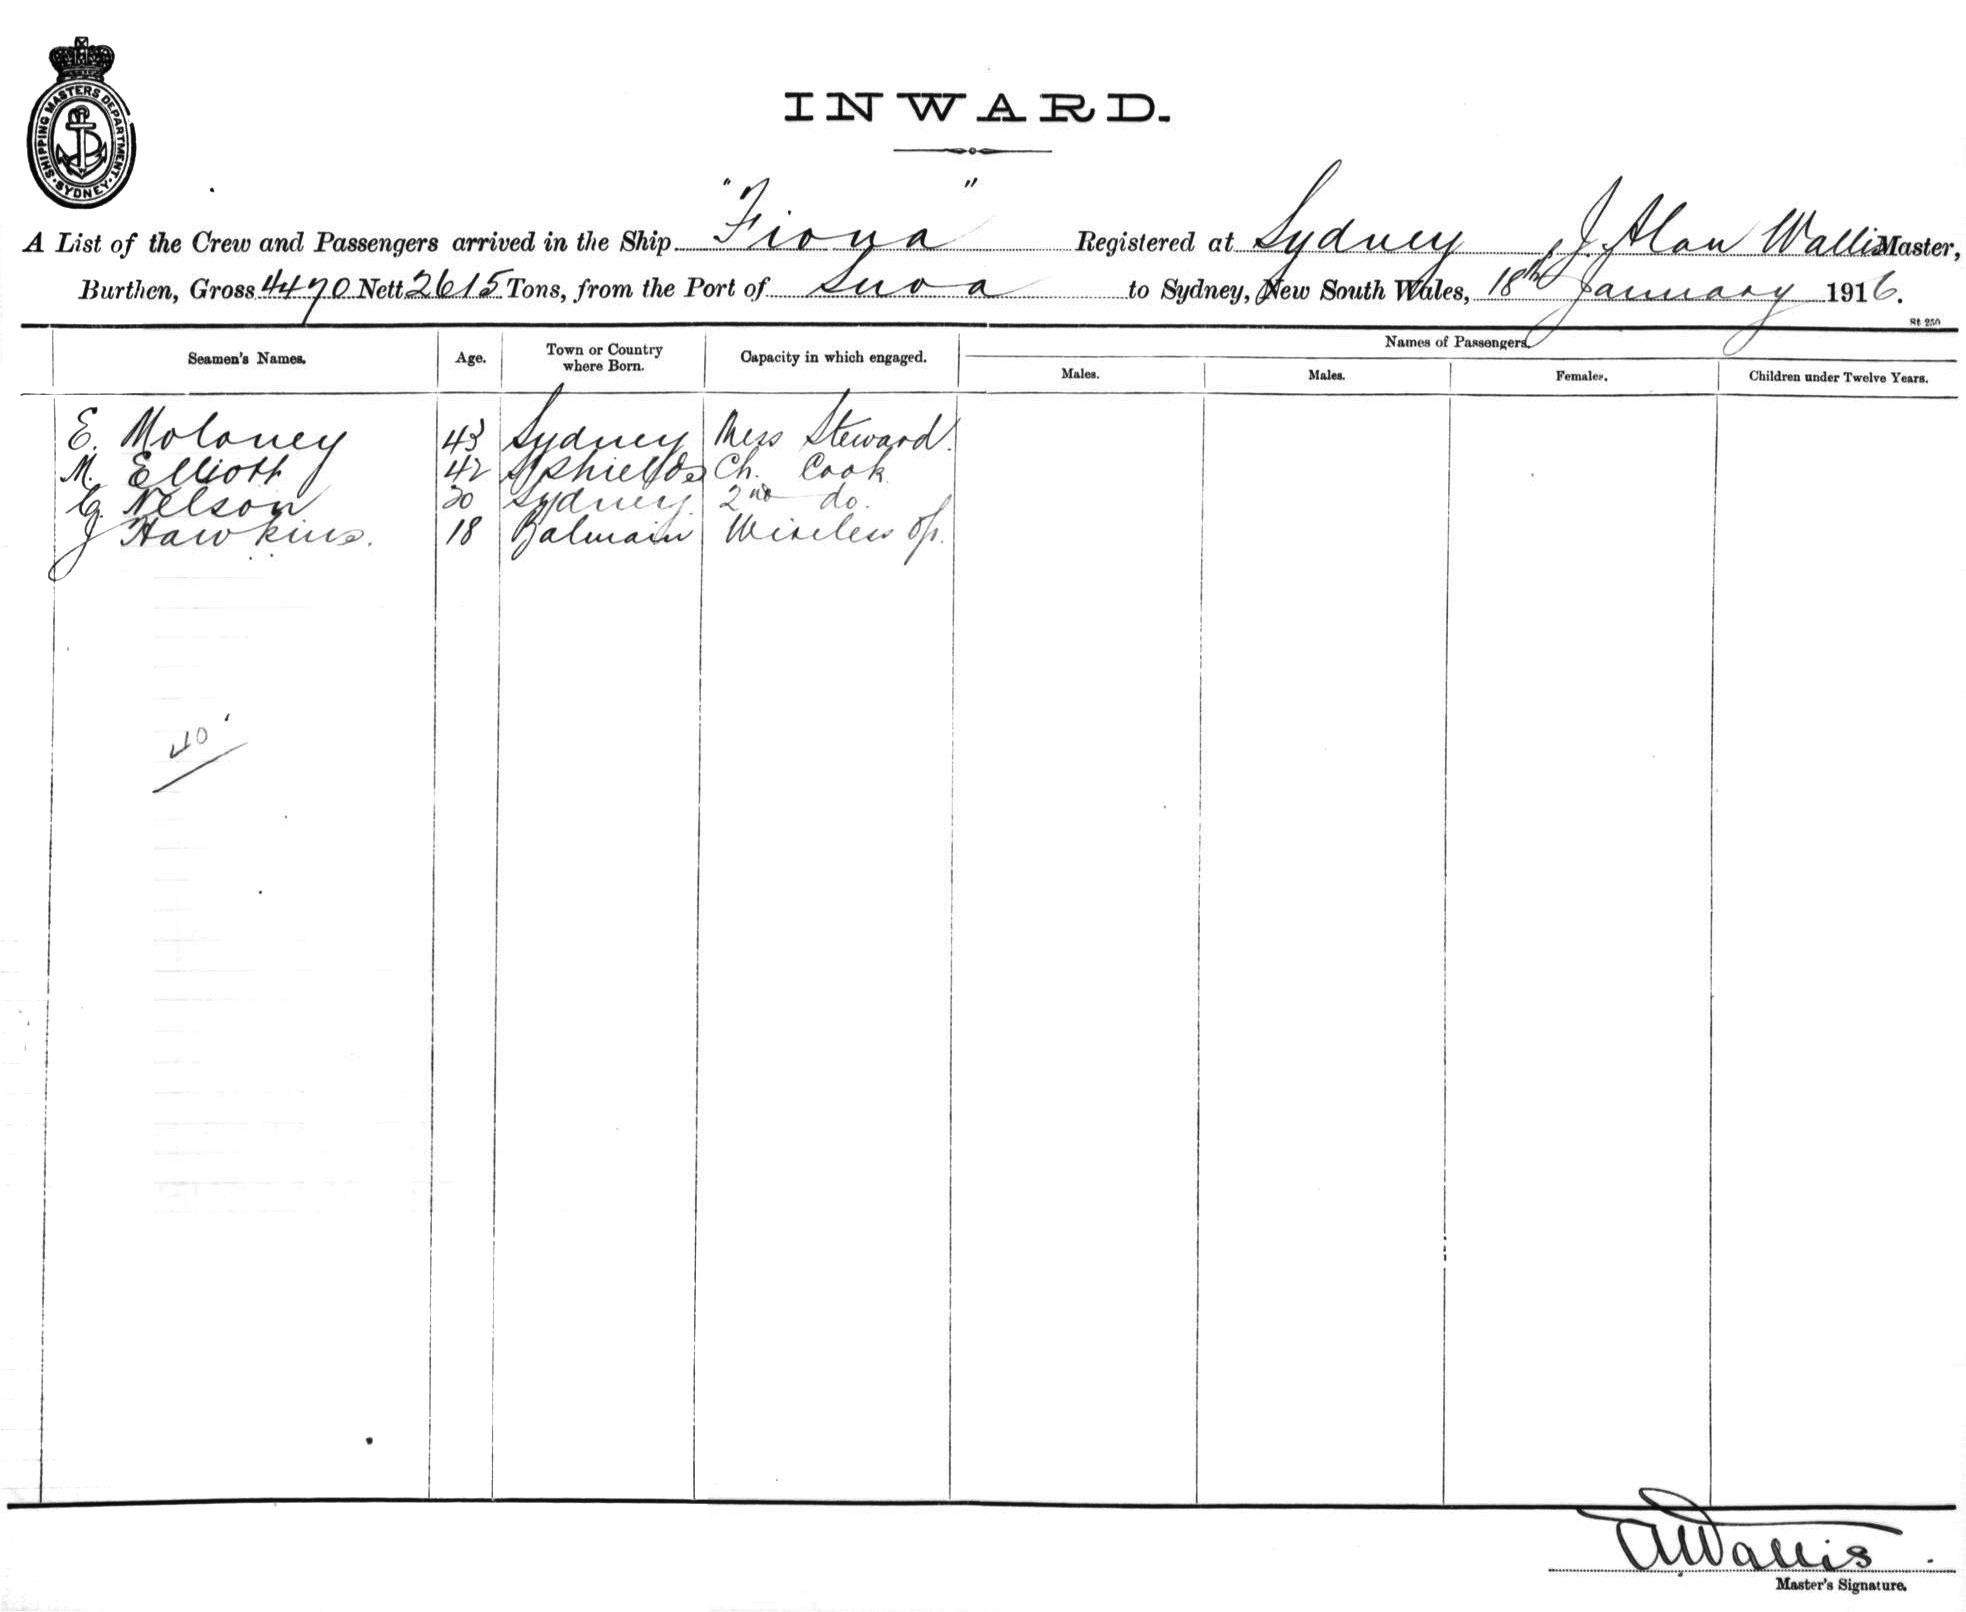 SHIPPING MASTERS DEPARTMENT · SYDNEY ·
INWARD.
A List of the Crew and Passengers arrived in the Ship "Fiona" Registered at Sydney, J. Alan Wallis Master,
Burthen, Gross 4470 Nett 2615 Tons, from the Port of Suva to Sydney, New South Wales, 18th January 1916.
St 250
Seamen's Names. Age. Town or Country where Born. Capacity in which engaged. Names of Passengers.
Males. Males. Females. Children under Twelve Years.
E. Moloney 43 Sydney Mess Steward.
M. Elliott 42 S Shields Ch. Cook
C. Nelson 20 Sydney. 2nd do.
J Hawkins. 18 Balmain Wireless Op.
40
A Wallis
Master's Signature.